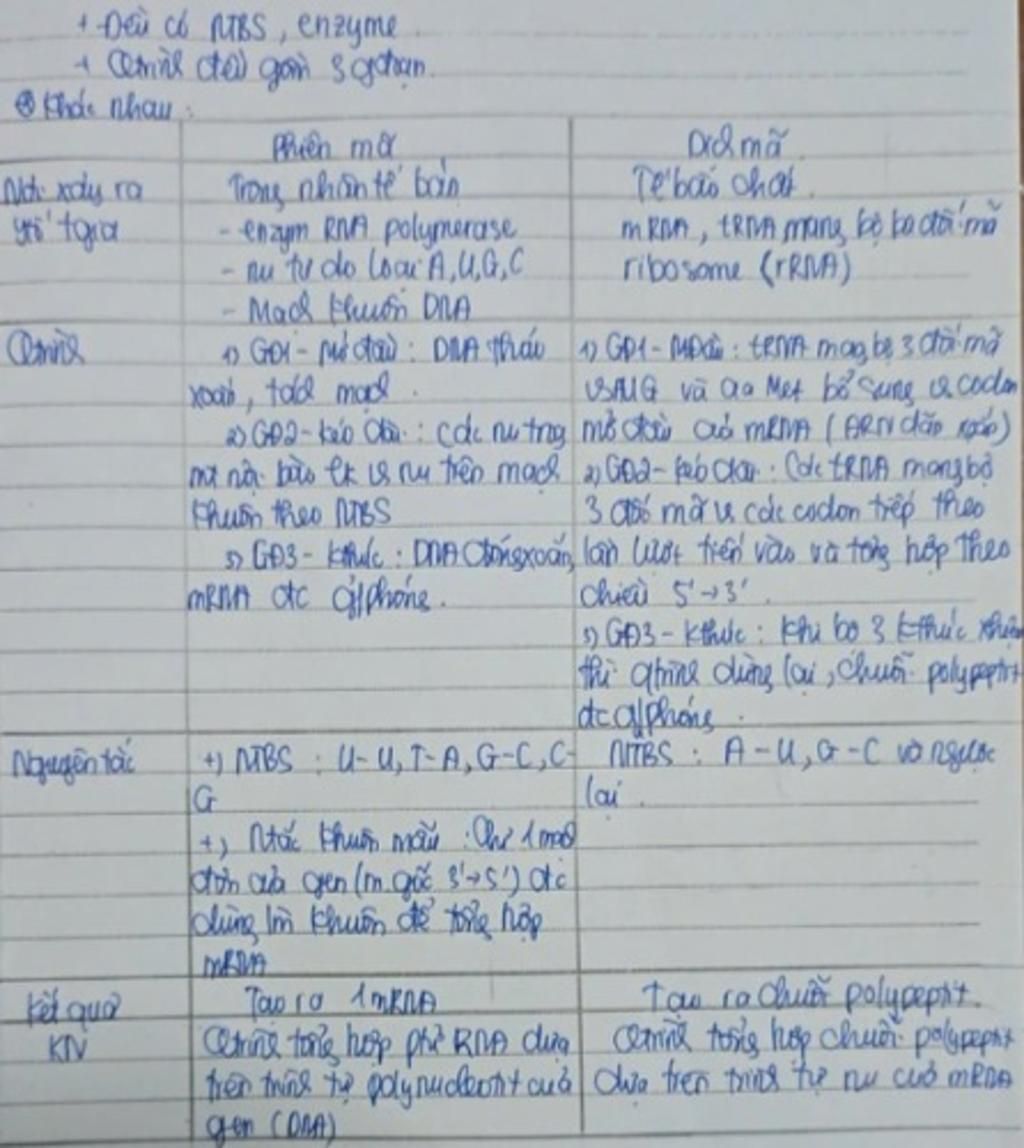 + Đều có NTBS, enzyme
+ Qtrình đều gồm 3 gđoạn.
* Khác nhau:
Phiên mã
Dịch mã
Nơi xảy ra
Trong nhân tế bào
Tế bào chất.
Ytố tgia
- enzym RNA polymerase
- nu tự do loại A, U, G, C
- Mạch khuôn DNA
mRNA, tRNA mang bộ ba đối mã
ribosome (rRNA)
Qtrình
1) GĐ1 - Mở đầu: DNA tháo
xoắn, tách mạch.
2) GĐ2 - kéo dài: các nu trng
mt nội bào lk vs nu trên mạch
khuôn theo NTBS
3) GĐ3 - kthúc: DNA đóng xoắn,
mRNA đc gphóng.
1) GĐ1 - MĐầu: tRNA mag bộ 3 đối mã
vs AUG và aa Met bổ sung vs codon
mở đầu của mRNA (ARN
2) GĐ2 - kéo dài: Các tRNA mang bộ
3 đối mã vs các codon tiếp theo
lần lượt tiến vào và tổng hợp theo
chiều 5' → 3'.
3) GĐ3 - kthúc: khi bộ 3 kthúc
thì qtrình dừng lại, chuỗi polypeptit
đc gphóng.
Nguyên tắc
+) NTBS: U-U, T-A, G-C, C-
G
+) Ntắc khuôn mẫu: Chỉ 1 mạch
đơn của gen (m. gốc 3'→5') đc
dùng lm khuôn để tổng hợp
mRNA
NTBS: A-U, G-C và ngược
lại.
Kết quả
Tạo ra 1 mRNA
Tạo ra chuỗi polypeptit.
KN
Qtrình tổng hợp phtử RNA dựa
trên trình tự polynucleotit của
gen (DNA)
Qtrình tổng hợp chuỗi polypeptit
dựa trên trình tự nu của mRNA